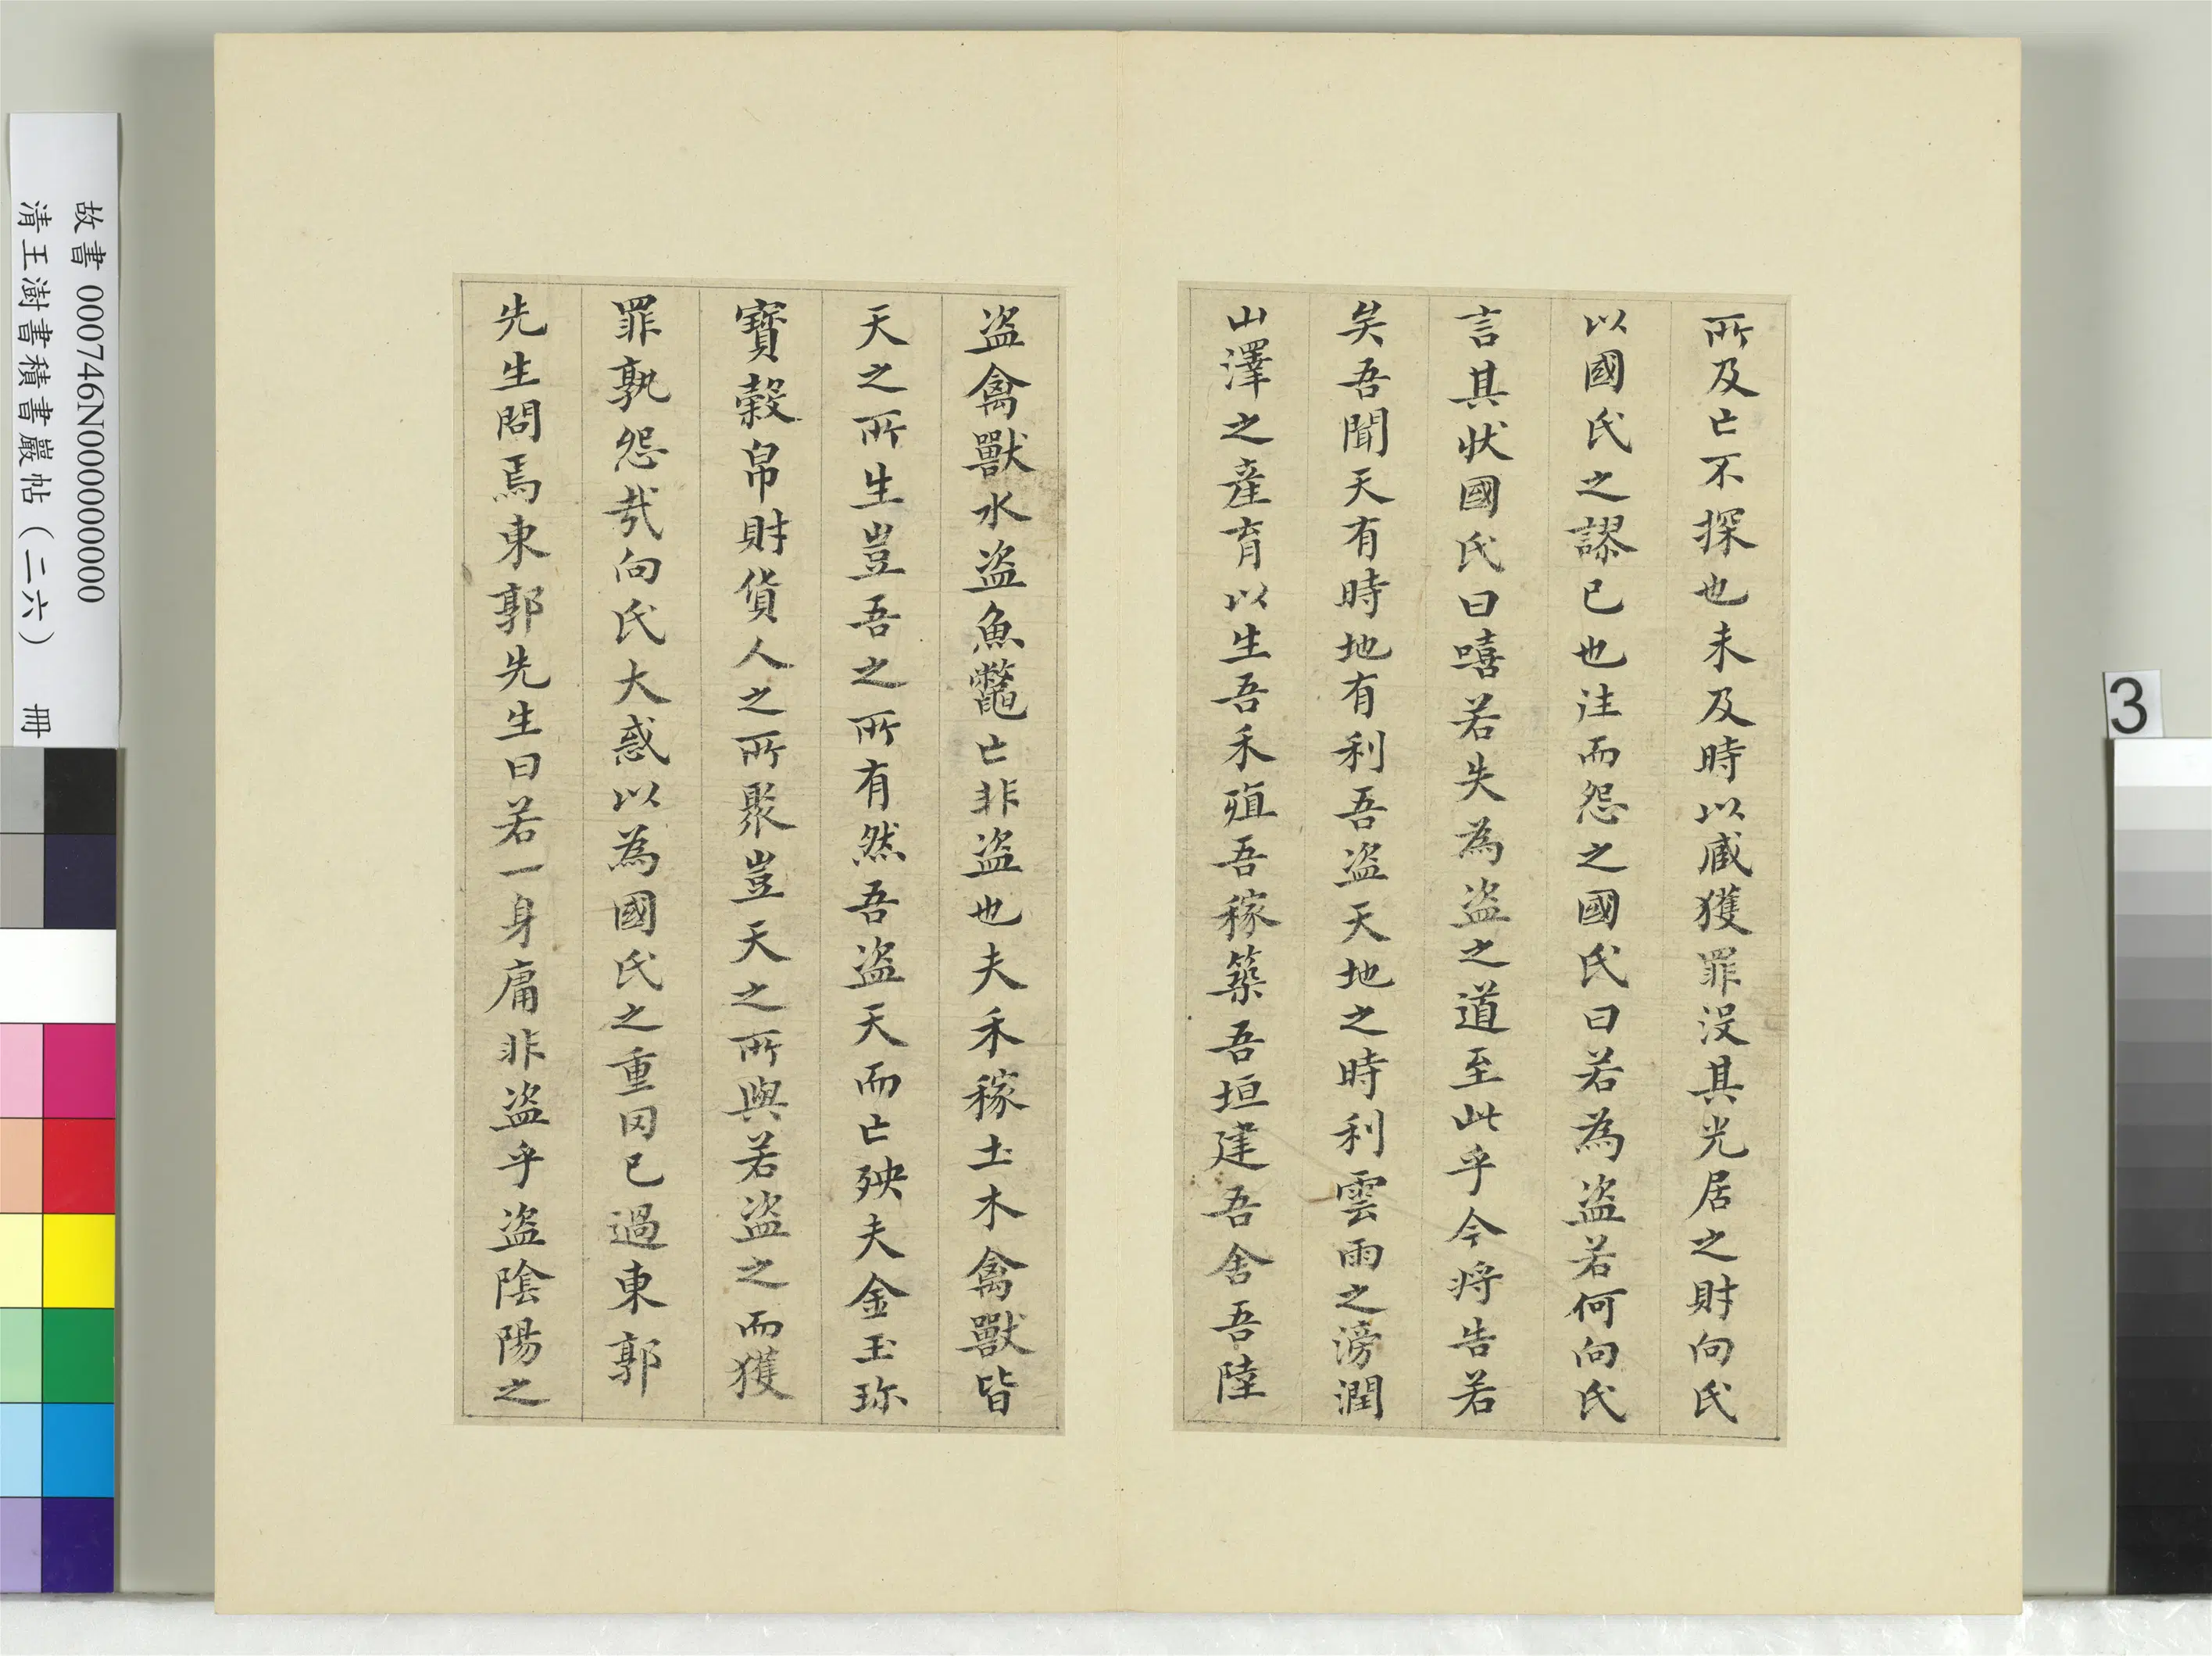 所及亡不探也未及時以臧獲罪沒其先居之財向氏
以國氏之謬己也往而怨之國氏曰若為盜若何向氏
言其狀國氏曰嘻若失為盜之道至此乎今將告若
矣吾聞天有時地有利吾盜天地之時利雲雨之滂潤
山澤之產育以生吾禾殖吾稼築吾垣建吾舍吾陸
盜禽獸水盜魚鼈亡非盜也夫禾稼土木禽獸皆
天之所生豈吾之所有然吾盜天而亡殃夫金玉珎
寶穀帛財貨人之所聚豈天之所與若盜之而獲
罪孰怨哉向氏大惑以為國氏之重罔己過東郭
先生問焉東郭先生曰若一身庸非盜乎盜陰陽之
故書 000746N000000000
清王澍書積書巖帖(二六) 冊
3